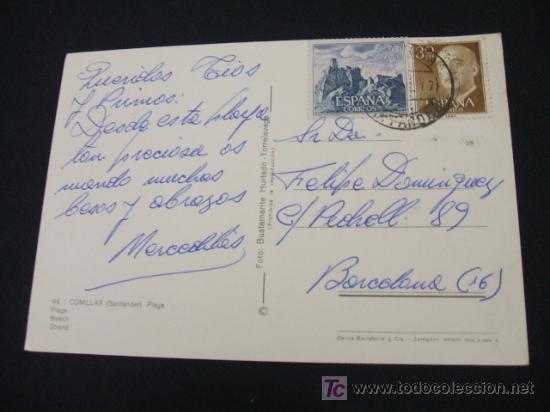 Queridos Tios
y Primos:
Desde esta playa
tan preciosa os
mando muchos
besos y abrazos
Mercedes
94. - COMILLAS (Santander) Playa
Plage
Beach
Strand
Foto: Bustamante Hurtado - Torrelavega
(Prohibida la reproducción)
©
ESPAÑA
CORREOS
ESPAÑA
Sr. D.
Felipe Dominguez
C/ Pedrell 89
Barcelona (16)
García Garrabella y Cía. - Zaragoza
TC todocoleccion.net